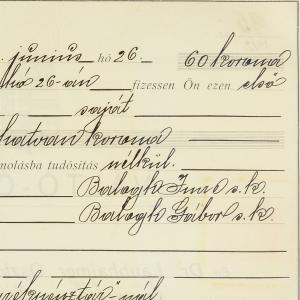 június hó 26. 60 korona
hó 26-án fizessen Ön ezen első
saját
hatvan korona
molásba tudósítás nélkül.
Balogh Imre s. k.
Balogh Gábor s. k.
"-nál.